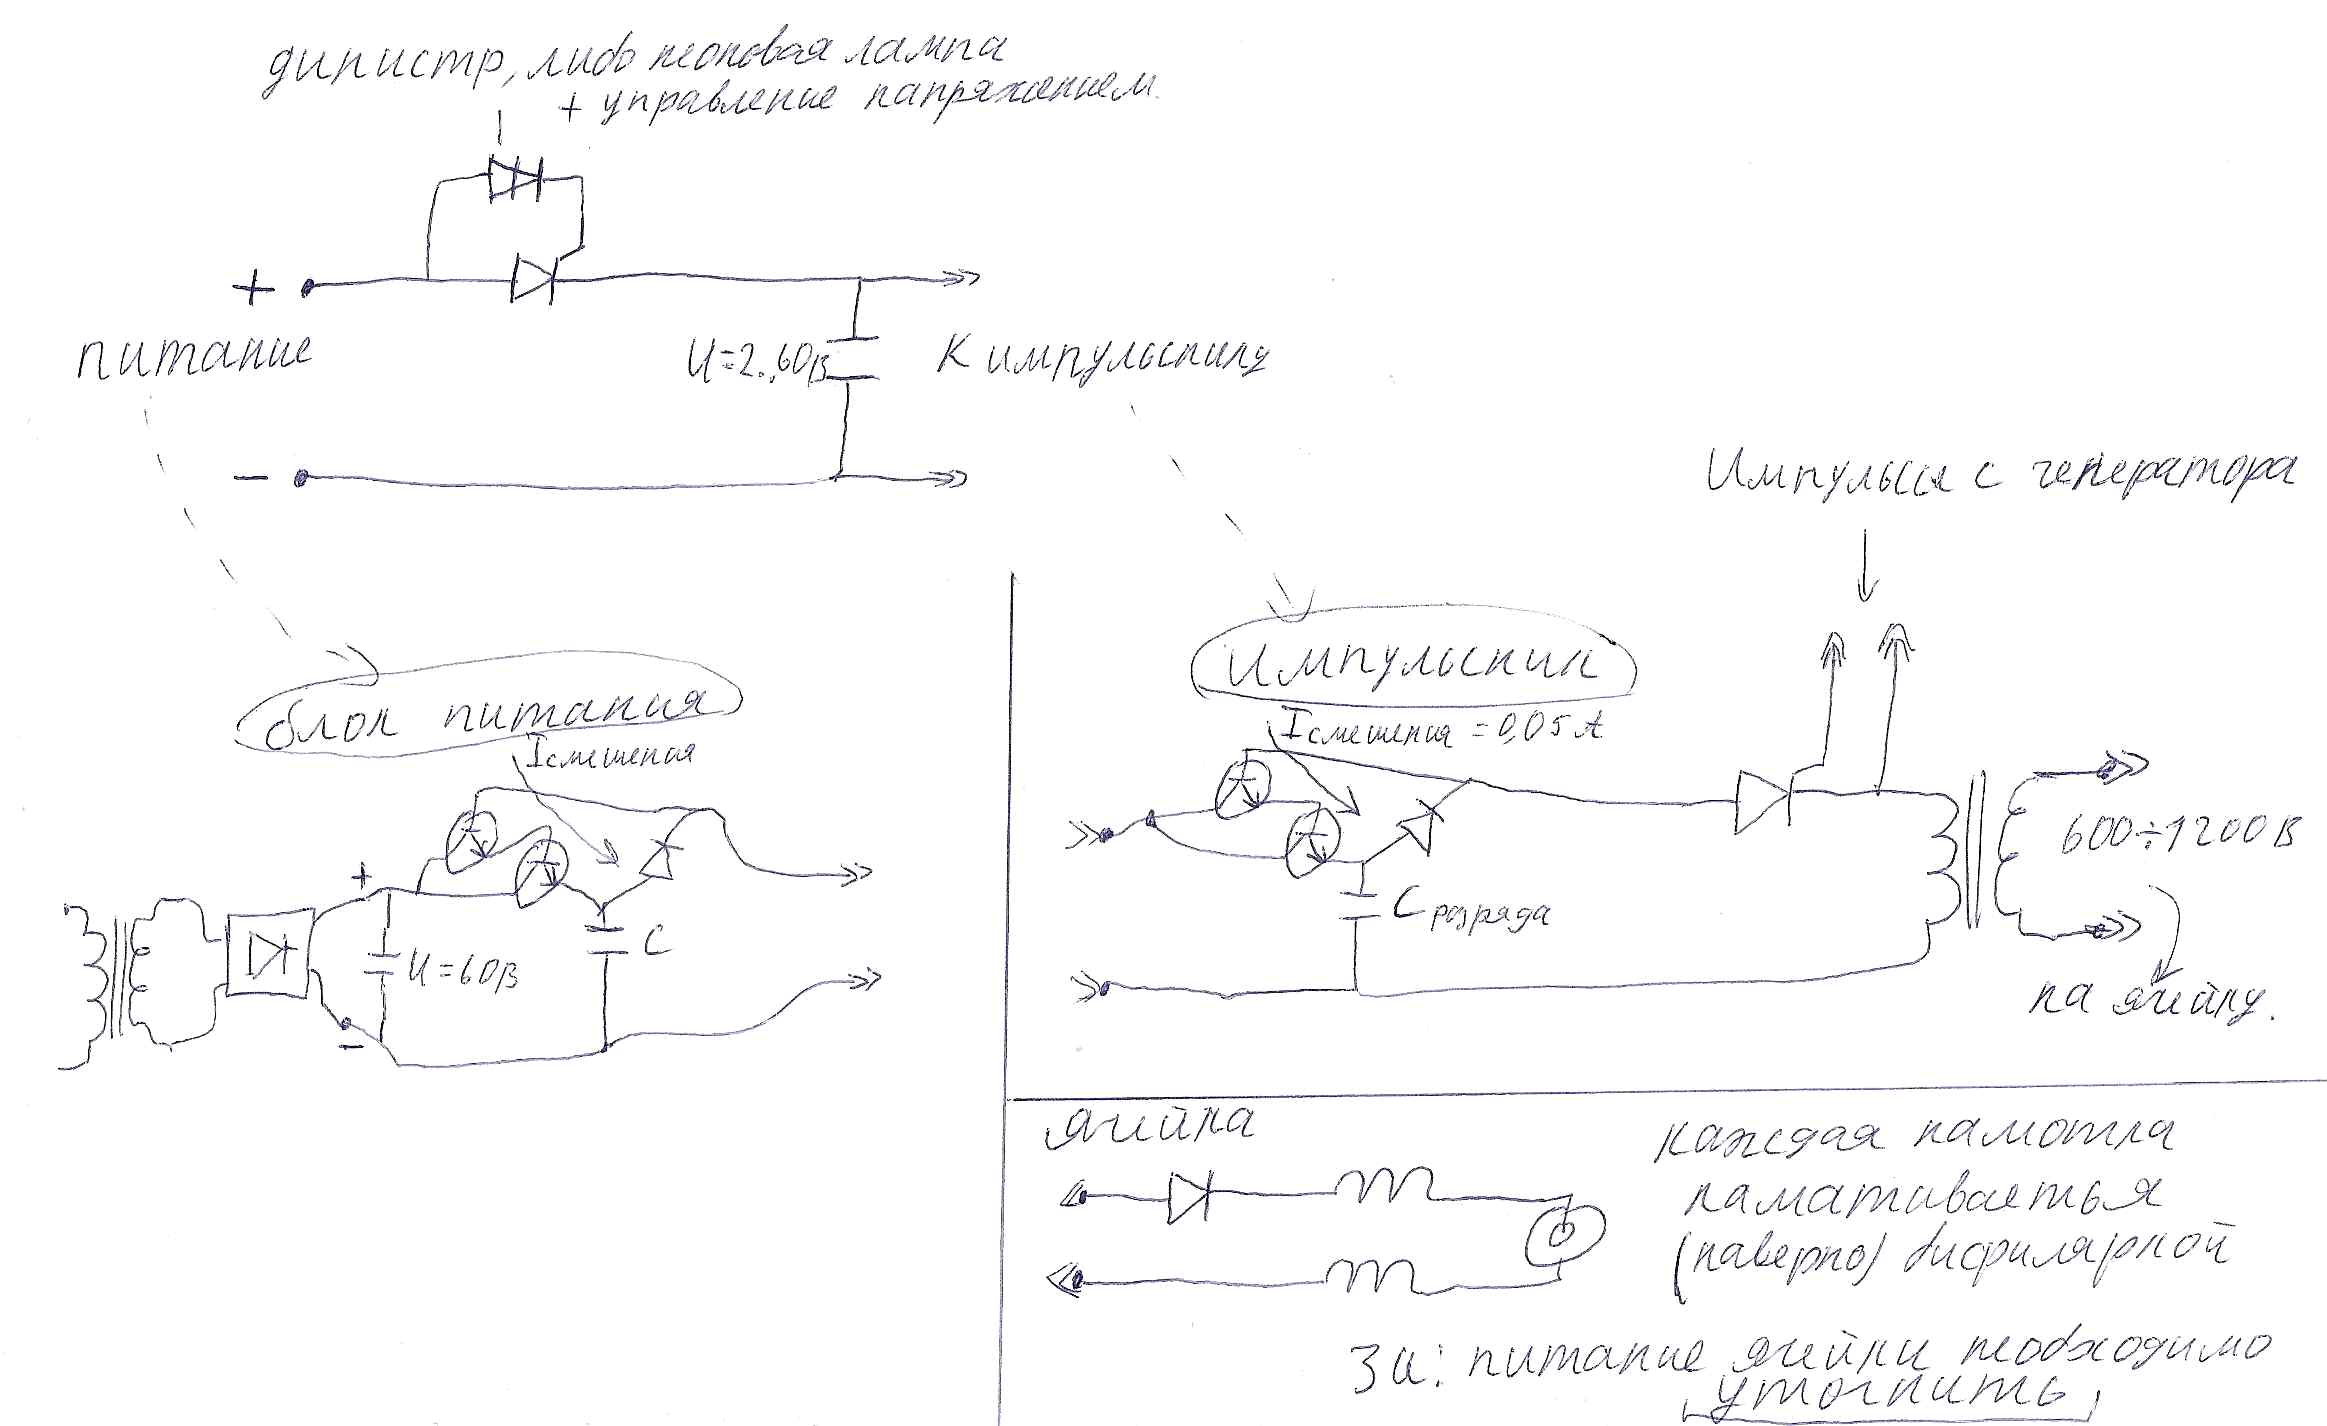 динистр, либо неоновая лампа
+ управление напряжением.
+
питание
U=2..60В
К импульснику
-
Импульсы с генератора
блок питания
Iсмещения
+
U=60В
C
-
Импульсник
Iсмещения = 0,05 А
C разряда
600÷1200 В
на ячейку.
ячейка
каждая намотка
намативаеться
(наверно) бифилярной
ЗЫ: питание ячейки необходимо
уточнить